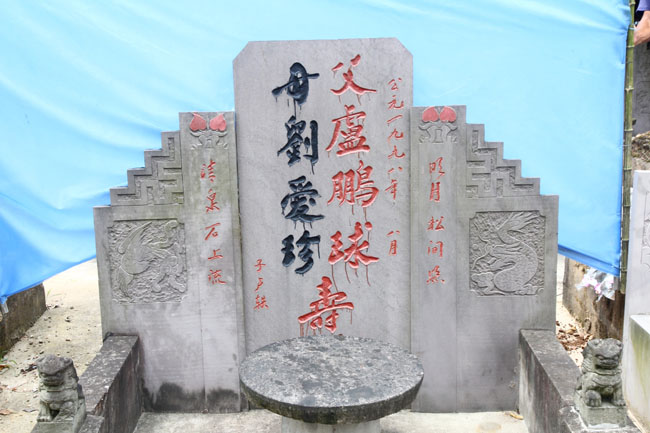 公元一九九八年 八月
父盧鵬球壽
母劉愛珍
子卢轶
明月松间照
清泉石上流